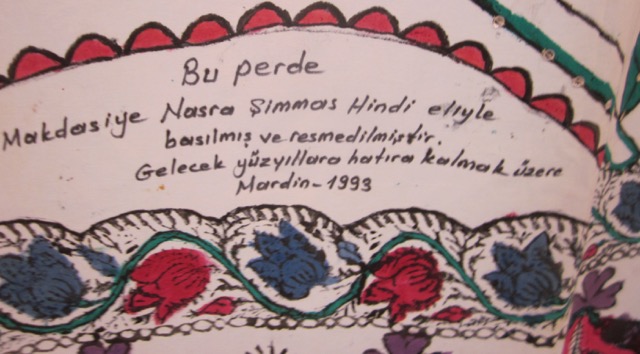 Bu perde
Makdasiye Nasra Şimmas Hindi eliyle
basılmış ve resmedilmiştir.
Gelecek yüzyıllara hatıra kalmak üzere
Mardin-1993